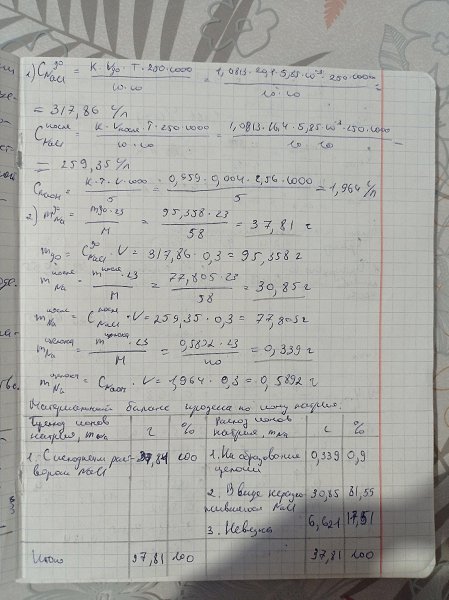 1) C до NaCl = K · Vдо · T · 250 · 1000 / 10 · 10 = 1,0813 · 20,1 · 5,85 · 10⁻³ · 250 · 1000 / 10 · 10 =
= 317,86 г/л
C после NaCl = K · Vпосле · T · 250 · 1000 / 10 · 10 = 1,0813 · 16,4 · 5,85 · 10⁻³ · 250 · 1000 / 10 · 10 =
= 259,35 г/л
C NaOH = K · T · V · 1000 / 5 = 0,959 · 0,004 · 2,56 · 1000 / 5 = 1,964 г/л
2) m до Na = mдо · 23 / M = 95,358 · 23 / 58 = 37,81 г
mдо = C до NaCl · V = 317,86 · 0,3 = 95,358 г
m после Na = m после · 23 / M = 77,805 · 23 / 58 = 30,85 г
m после Na = C после NaCl · V = 259,35 · 0,3 = 77,805 г
m щелока Na = m щелока · 23 / M = 0,5892 · 23 / 40 = 0,339 г
m щелоч Na = C NaOH · V = 1,964 · 0,3 = 0,5892 г
Материальный баланс процесса по иону натрия.
Приход ионов натрия, mNa г % Расход ионов натрия, mNa г %
1. С исходным раствором NaCl 37,81 100 1. На образование щелочи 0,339 0,9
2. В виде NaCl 30,85 81,55
3. Невязка 6,621 17,51
Итого 37,81 100 37,81 100